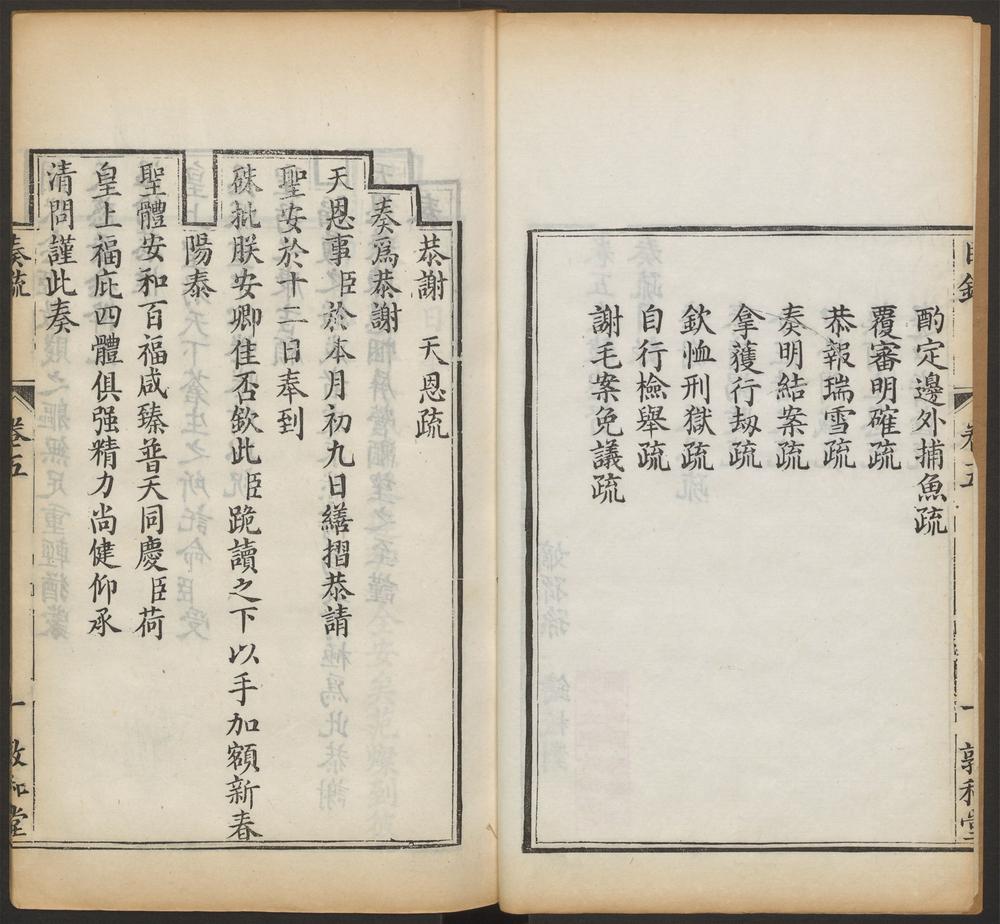 目錄 卷五 一 敦和堂
酌定邊外捕魚疏
覆審明確疏
恭報瑞雪疏
奏明結案疏
拿獲行刼疏
欽恤刑獄疏
自行檢舉疏
謝毛案免議疏
恭謝 天恩疏
奏爲恭謝
天恩事臣於本月初九日繕摺恭請
聖安於十二日奉到
硃批朕安卿佳否欽此臣跪讀之下以手加額新春
陽泰
聖體安和百福咸臻普天同慶臣荷
皇上福庇四體俱强精力尚健仰承
清問謹此奏
奏疏 卷五 一 敦和堂